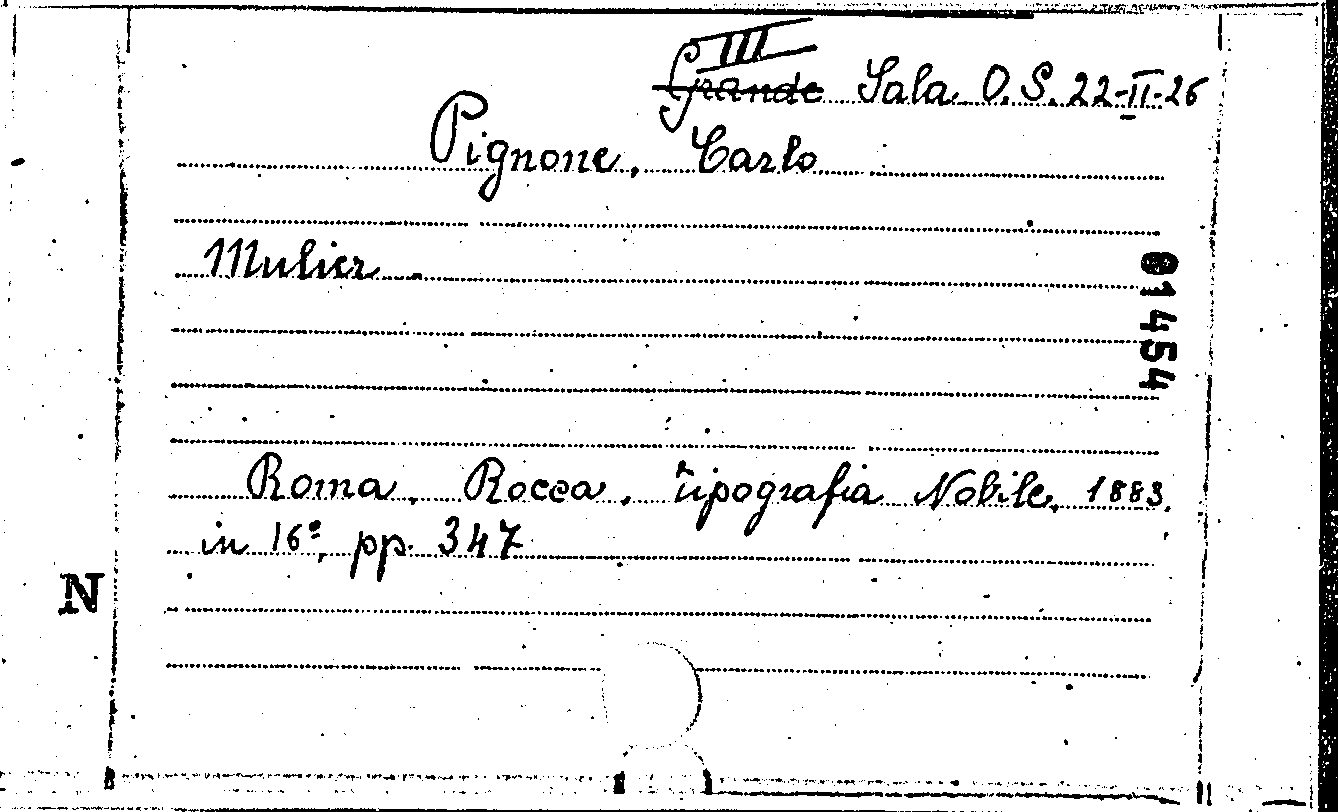 III
Grande Sala O.S. 22-II-26
Pignone, Carlo
Mulier.
81454
Roma, Rocca, tipografia Nobile, 1883,
in 16º, pp. 347
N